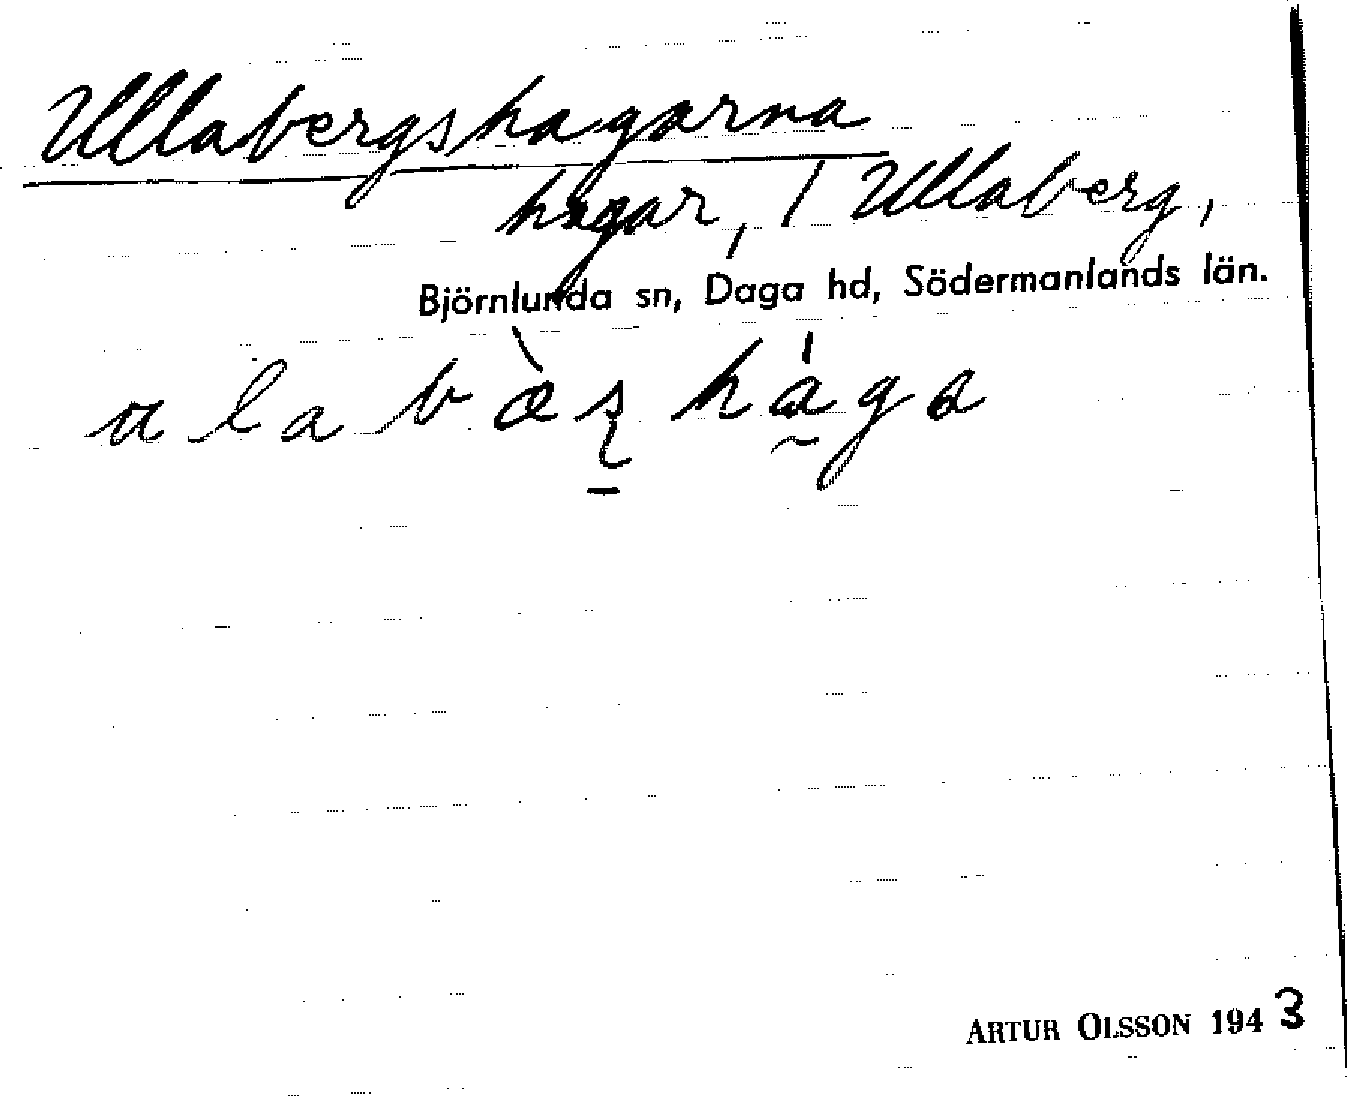 Ullabergshagarna
hagar, / Ullaberg,
Björnlunda sn, Daga hd, Södermanlands län.
ARTUR OLSSON 1943